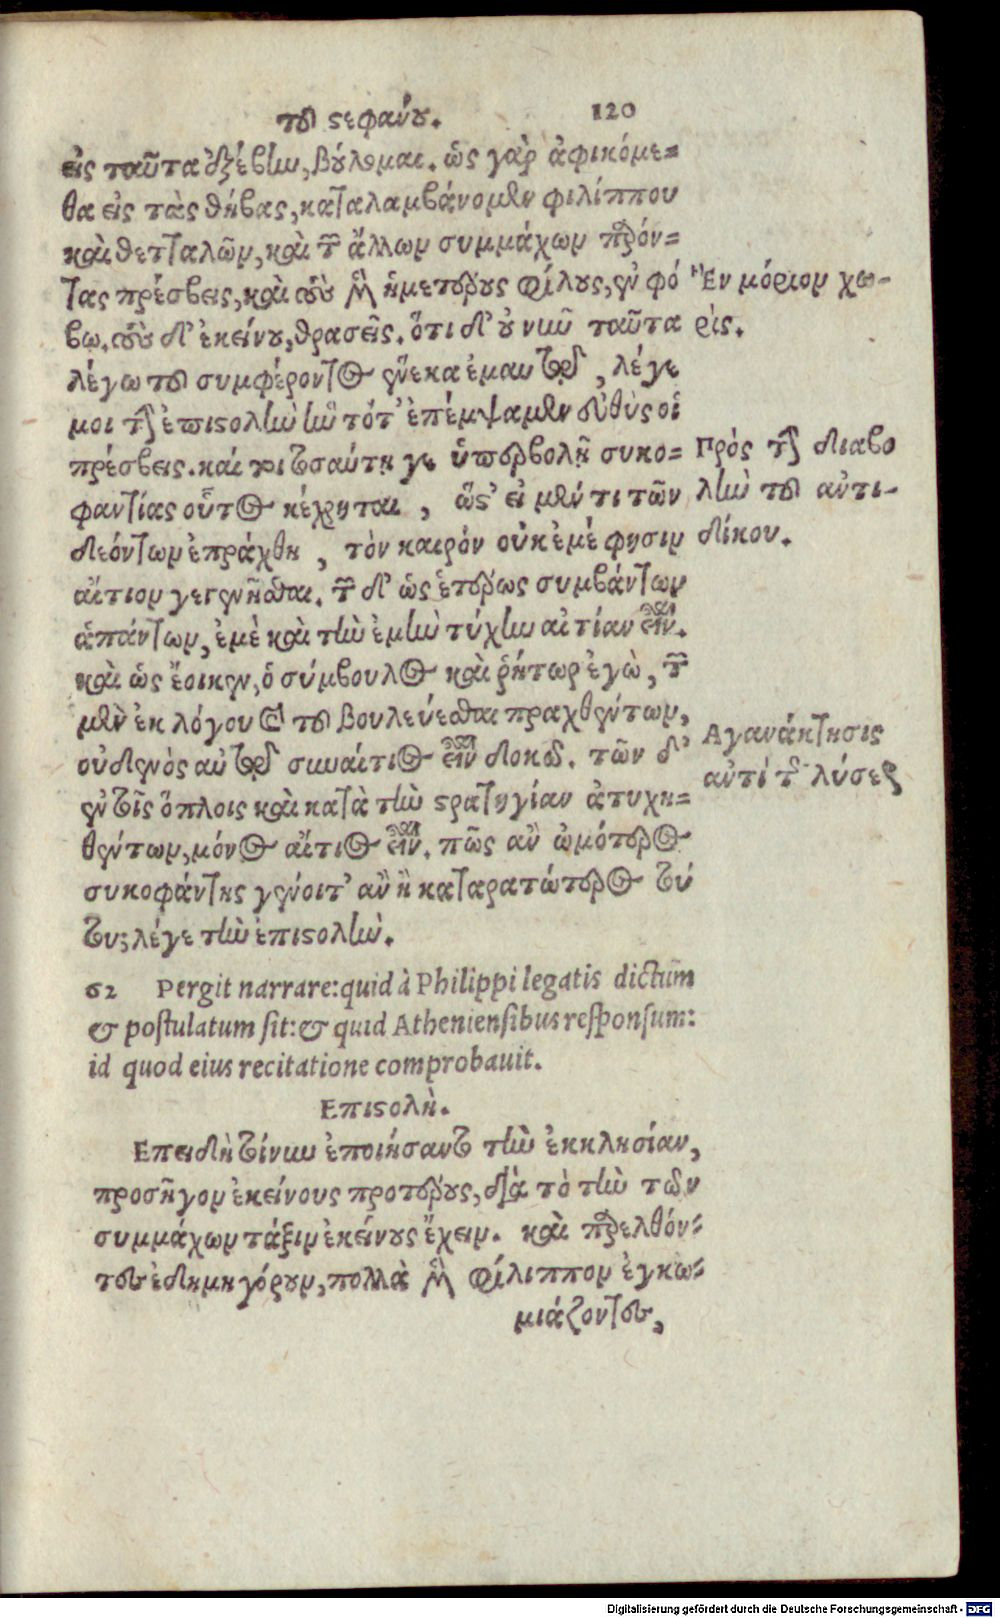 τοῦ στεφάνου. 120
εἰς ταῦτα ἐπανελθεῖν, βούλομαι. ὡς γὰρ ἀφικόμε=
θα εἰς τὰς θήβας, καταλαμβάνομεν φιλίππου
καὶ θετταλῶν, καὶ τῶν ἄλλων συμμάχων παρόν=
τας πρέσβεις, καὶ τοὺς μὲν ἡμετέρους φίλους, ἐν φό
βῳ. τοὺς δ' ἐκείνου, θρασεῖς. ὅτι δ' οὐ νῦν ταῦτα
λέγω τοῦ συμφέροντος ἕνεκα ἐμαυτῷ, λέγε
μοι τὴν ἐπιστολὴν ἣν τότ' ἐπέμψαμεν εὐθὺς οἱ
πρέσβεις. καί τοι τοσαύτῃ γε ὑπερβολῇ συκο=
φαντίας οὗτος κέχρηται, ὥστ' εἰ μέν τι τῶν
δεόντων ἐπράχθη, τὸν καιρόν οὐκ ἐμέ φησιν
αἴτιον γεγενῆσθαι. τῶν δ' ὡς ἑτέρως συμβάντων
ἁπάντων, ἐμὲ καὶ τὴν ἐμὴν τύχην αἰτίαν εἶναι.
καὶ ὡς ἔοικεν, ὁ σύμβουλος καὶ ῥήτωρ ἐγὼ, τῶν
μὲν ἐκ λόγου καὶ τοῦ βουλεύεσθαι πραχθέντων,
οὐδενὸς αὐτῷ συναίτιος εἶναι δοκῶ. τῶν δ'
ἐν τοῖς ὅπλοις καὶ κατὰ τὴν στρατηγίαν ἀτυχη=
θέντων, μόνος αἴτιος εἶναι. πῶς ἂν ὠμότερος
συκοφάντης γένοιτ' ἂν ἢ καταρατότερος τού
του; λέγε τὴν ἐπιστολήν.
Ἓν μόριον χω-
ρίς.
Πρὸς τὴν διαβο
λὴν τοῦ ἀντι-
δίκου.
Αγανάκτησις
ἀντὶ τῆς λύσεως
62 Pergit narrare: quid à Philippi legatis dictum
& postulatum sit: & quid Atheniensibus responsum:
id quod eius recitatione comprobauit.
Επιστολή.
Επειδὴ τοίνυν ἐποιήσαντο τὴν ἐκκλησίαν,
προσῆγον ἐκείνους προτέρους, διὰ τὸ τὴν τῶν
συμμάχων τάξιν ἐκείνους ἔχειν. καὶ παρελθόν=
τες ἐδημηγόρουν, πολλὰ μὲν φίλιππον ἐγκω=
μιάζοντες,
Digitalisierung gefördert durch die Deutsche Forschungsgemeinschaft - DFG